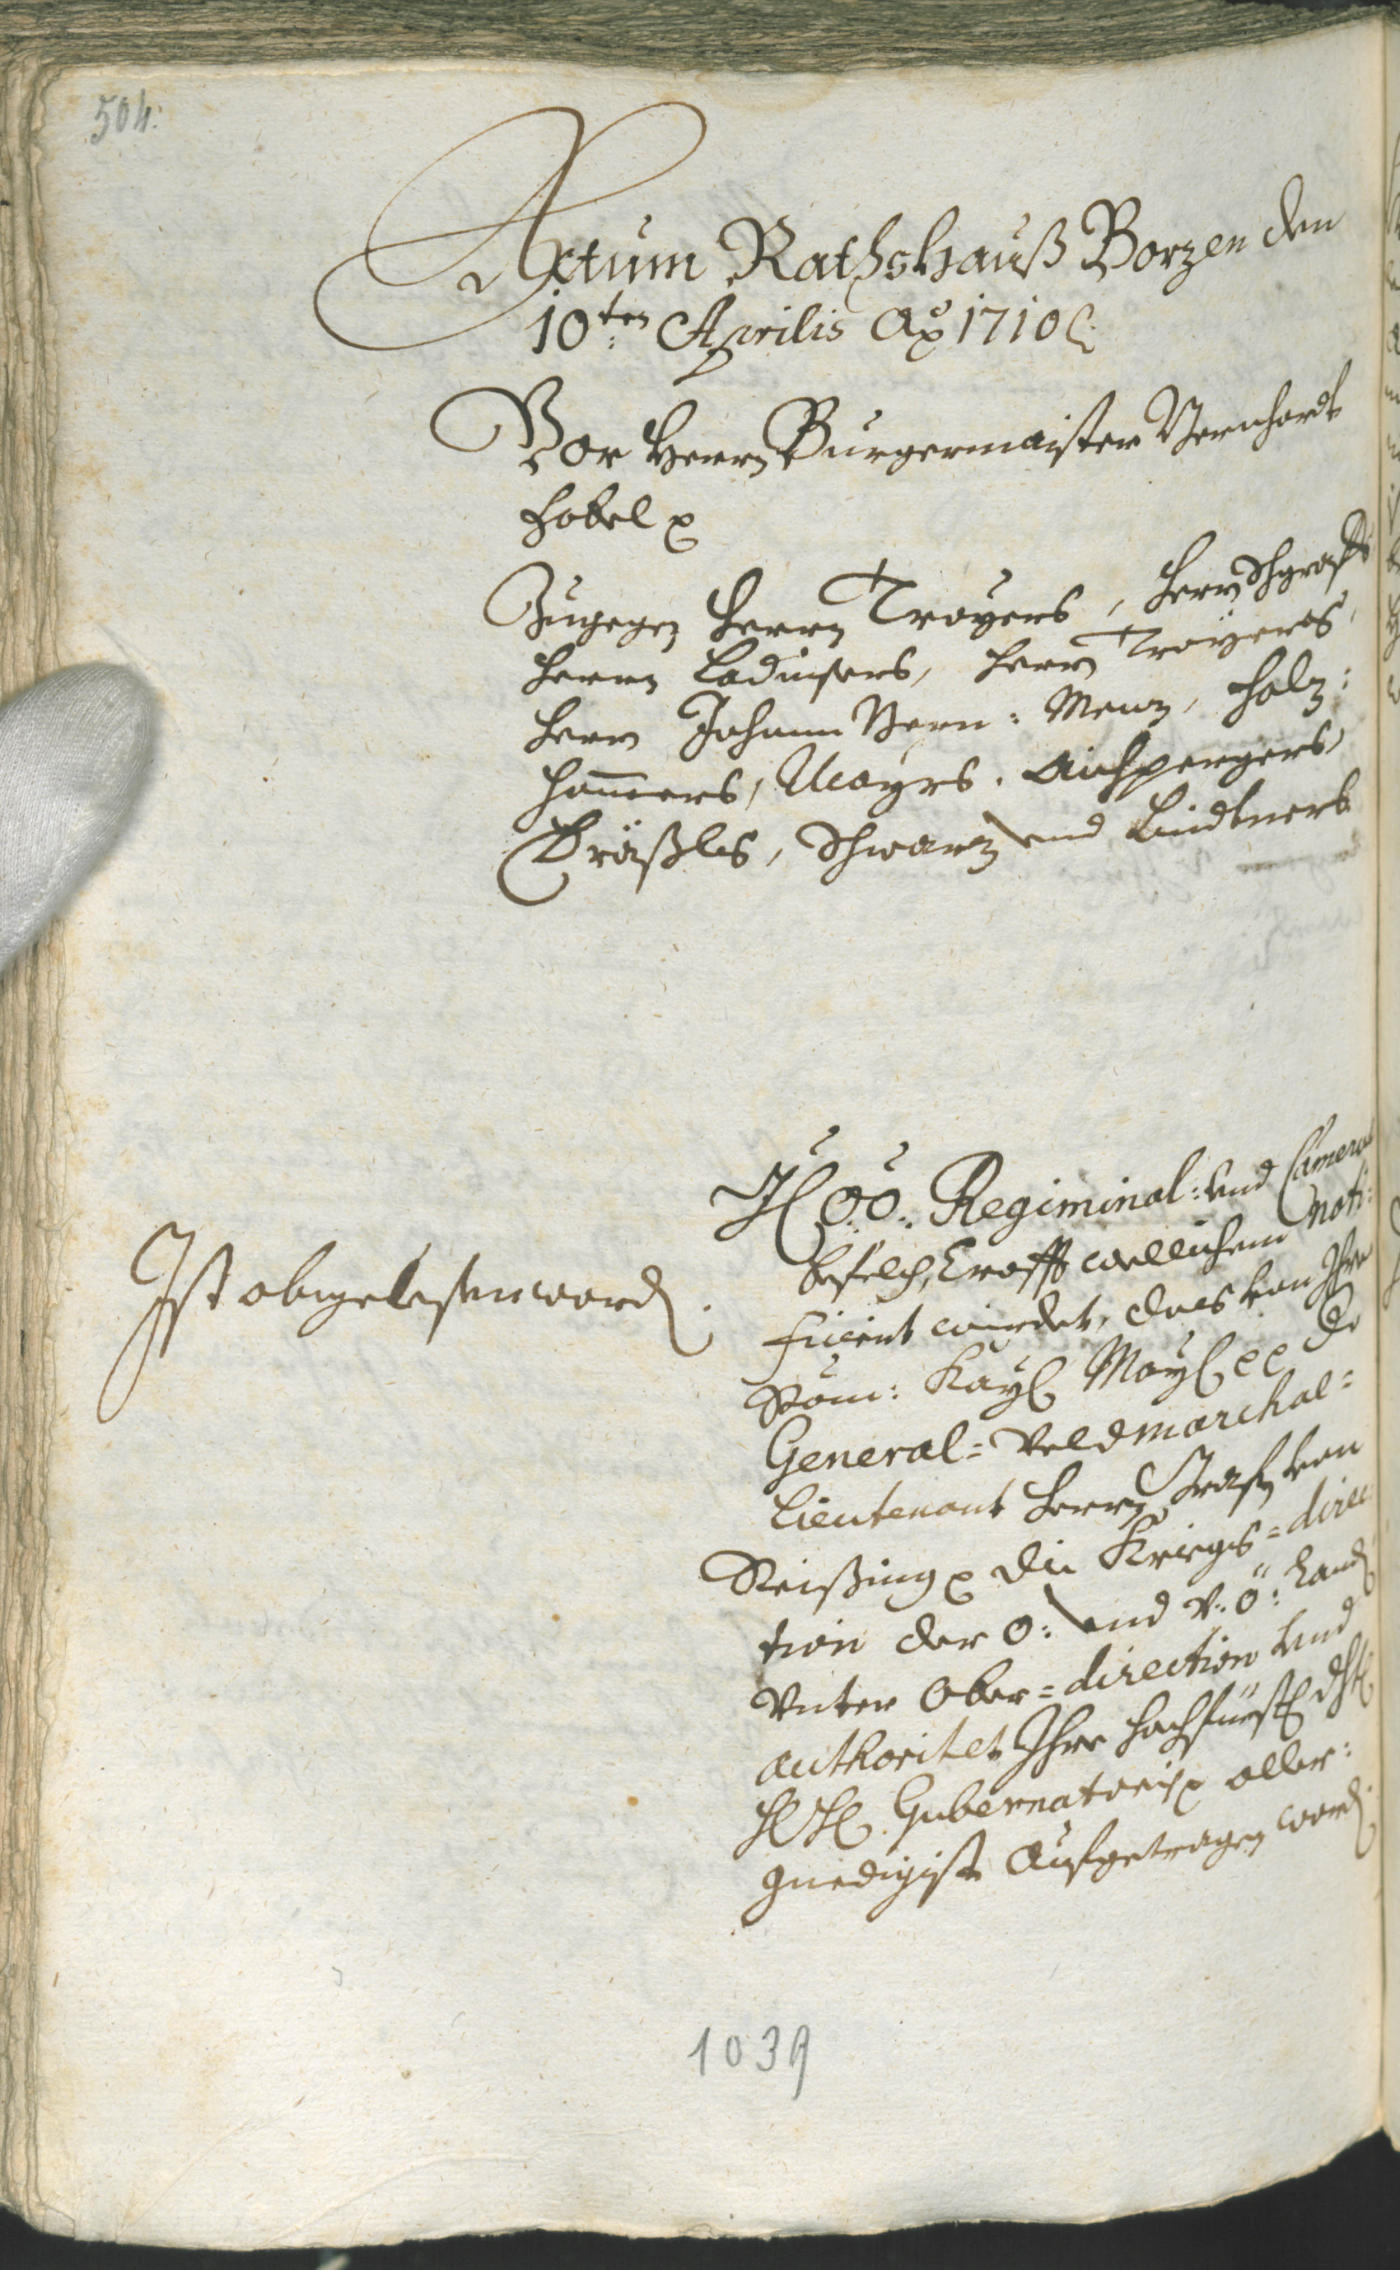 504:
Actum Rathshauß Bozen den
10ten Aprilis Ao 1710
Vor Herrn Burgermaister Bernhardt
Hobel
Zugegen Herrn Troyers, Herrn
Herrn Ladinsers, Herrn Troyers,
Herrn Johann Bern: Menz, Holz:
hamers, Mayrs, Aichpergers,
Präßles, Schwarz und Lindtners
Ist abgelesen word.
OÖ: Regiminal: und Cameral
befelch, Crafft wellichem noti:
ficiert wirdet, das von Ihro
Röm: Kay May de
General-Veldmarchal-
Lieutenant Herrn Grafen von
die Kriegs-direc
tion der O: und V: Ö: Land
Unter Ober-direction und
authoritet Ihro hochfürst
Gubernatoris aller:
gnedigist aufgetragen word
1039